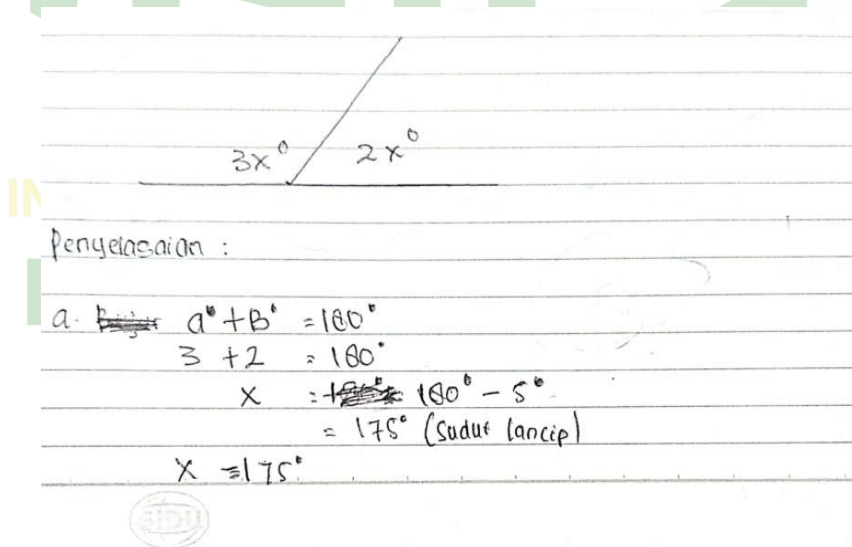 3x° 2x°
Penyelasaian :
a. a° + B° = 180°
3 + 2 = 180°
x = 180° - 5°
= 175° (Sudut lancip)
x = 175°
SIDU